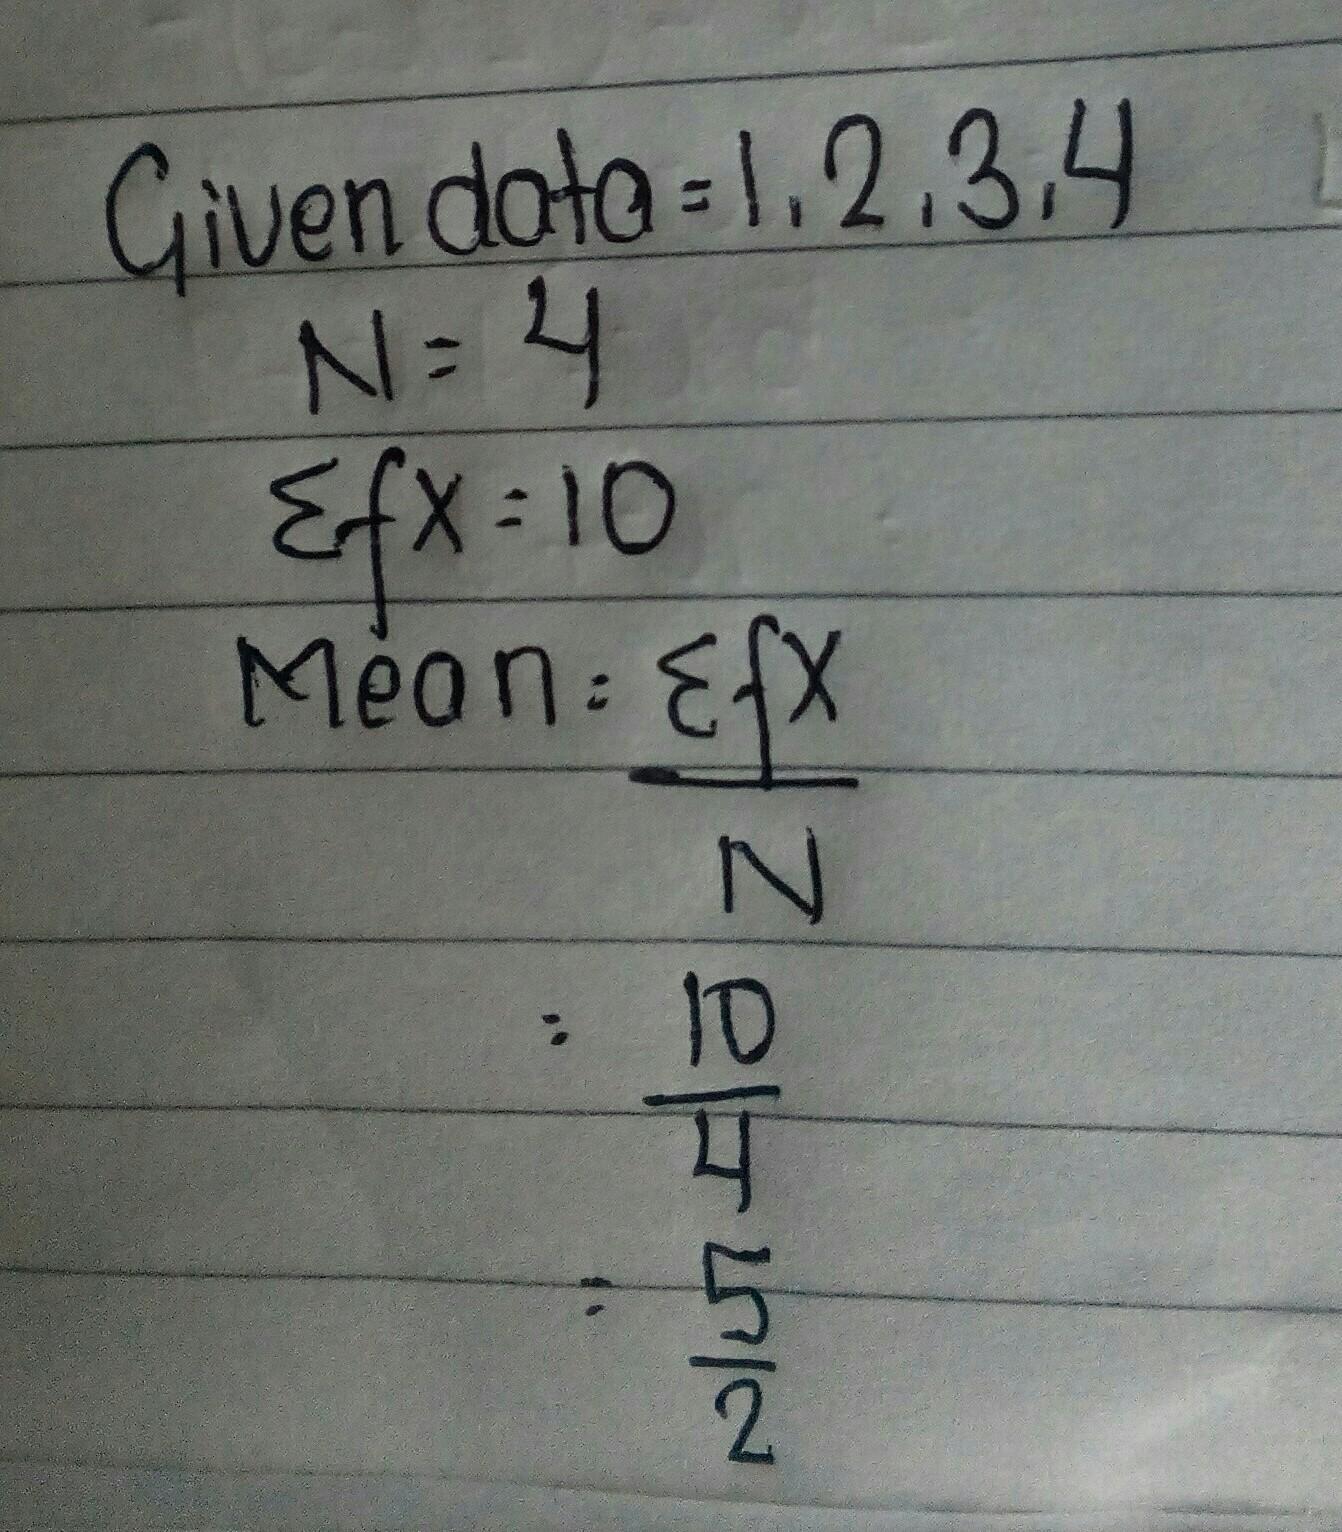 Given data = 1, 2, 3, 4
N = 4
Σfx = 10
Mean = Σfx
N
= 10
4
= 5
2